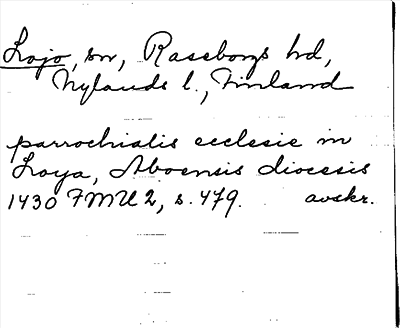 Lojo, sn, Raseborgs hd,
Nylands l., Finland
parrochialis ecclesie in
Loya, Aboensis diocesis
1430 FMU 2, s. 479. avskr.